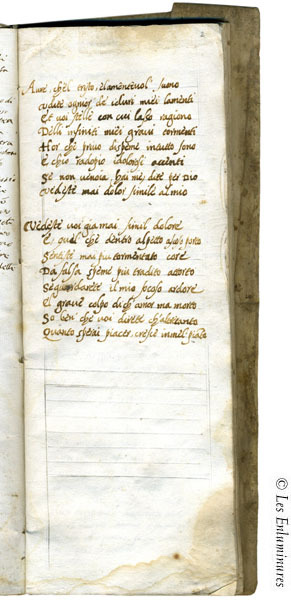 2
Aure, ch'el tristo, e lamentevol' suono
udite ognor de i duri miei lamenti
Et voi stelle con cui lasso ragiono
Delli infiniti miei gravi tormenti
Hor che privo di speme in tutto sono
E ch'io radopio i dolorosi accenti
Se non v'annoia, hai me, dite per Dio
vedeste mai dolor simile al mio
Vedeste voi gia mai simil dolore
E quel che dentro al petto ascoso porto
Sentite mai piu tormentato core
Da falsa speme piu tradito a torto
il mio ardore
E grave colpo di ch'amor m'ha morto
So ben che voi direte ch'altretanto
Quanto sperai piacer, cresce in me'l pianto
© Les Enluminures